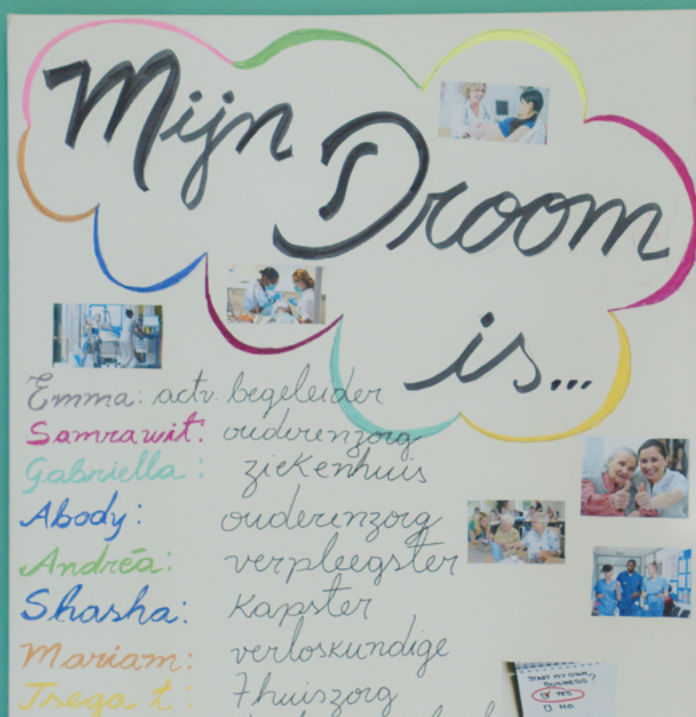 Mijn
Droom
is...
Emma: actv. begeleider
Samrawit: ouderenzorg
Gabriella: ziekenhuis
Abody: ouderenzorg
Andréa: verpleegster
Shasha: Kapster
Mariam: verloskundige
Tsega t: Thuiszorg
START MY OWN
BUSINESS?
YES
NO